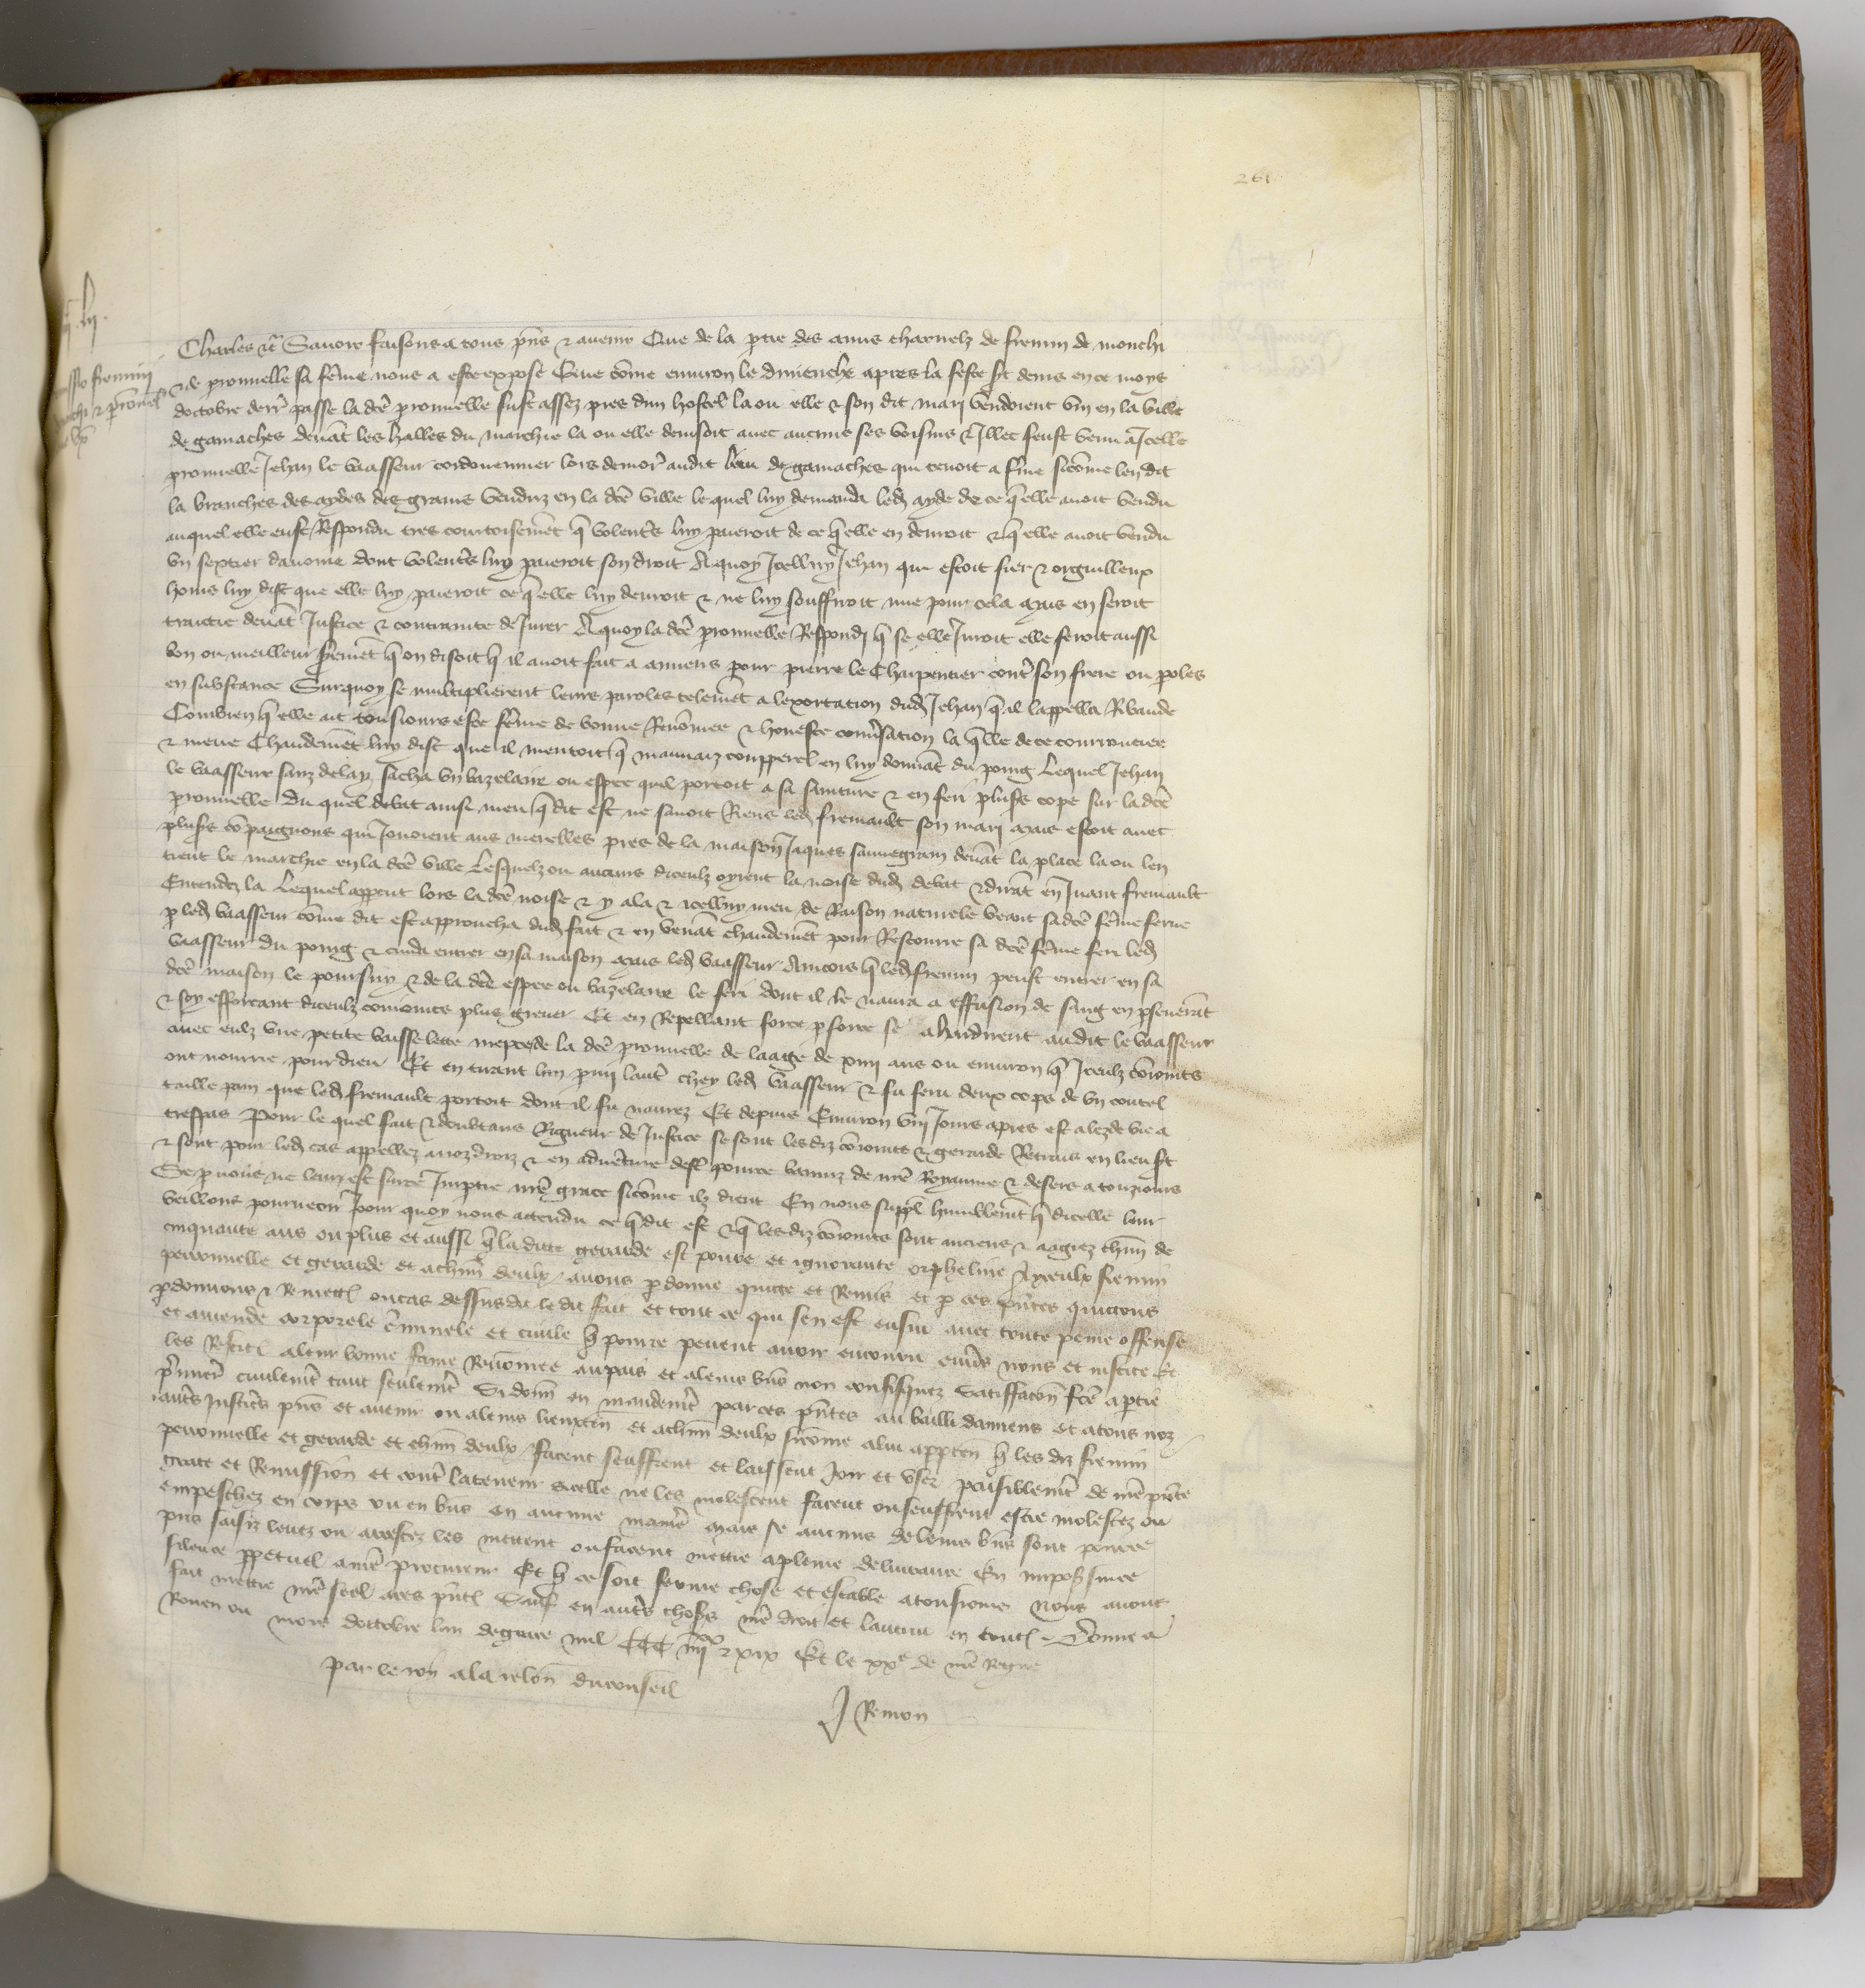 261
Charles etc Savoir faisons a tous pñs & avenir Que de la ptie des amis charnelz de fremin de monchi
& de pronnelle sa fẽme nous a este expose Que cõme environ le dimenche apres la feste st denis en ce moys
doctobre derr̃ passe la dcẽ pronnelle fust assez pres dun hostel la ou elle & son dit mari vendoient vin en la ville
de gamaches devãt les halles du marchie la ou elle devisoit avec aucuns ses voisins & Jllec feust venu a Jcelle
pronnelle Jehan le vasseur cordouennier lors demor̃ audit lieu de gamaches qui tenoit a fme sicõme len dit
la branches des aydes des grains venduz en la dcẽ ville le quel luy demanda led ayde de ce q̃ elle avoit vendu
auquel elle eust Respondu tres courtoisemẽt q̃ volentr̃s luy paieroit de ce q̃ elle en devroit & q̃ elle avoit vendu
vn sextier davoine dont volentr̃s luy paieroit son droit Aquoy Jcelluy Jehan qui estoit fier & orguilleux
homs luy dist que elle luy paieroit ce q̃ elle luy devroit & ne luy souffiroit mie pour cela mais en seroit
traictie devãt Justice & contrainte de Jurer Aquoy la dcẽ pronnelle Respondi q̃ se elle Juroit elle feroit aussi
bon ou meilleur sr̃emẽt q̃ on disoit q̃ il avoit fait a amiens pour pierre le Charpentier contr̃ son frere ou poles
en substance Surquoy se multiplierent leurs paroles telemẽt a lexortation dud Jehan q̃ il lappella Ribaude
Combien q̃ elle ait tousiours este fẽme de bonne Renõmee & honeste conṽsation la q̃lle de ce courrouciee
& meue Chaudemẽt luy dist que il mentoit q̃ mauvaiz coupperel en luy donnãt du poing Lequel Jehan
le vasseur sanz delay sacha vn bazelaire ou espee quil portoit a sa sainture & en feri plusr̃s cops sur la dcẽ
pronnelle Du quel debat ainsi meu q̃ dit est ne savoit Riens led fremault son mari mais estoit avec
plusr̃s cõpaignons qui Jouoient aus merelles pres de la maison Jaques sauvegrain devãt la place la ou len
tient le marchie en la dcẽ ville Lesquelz ou aucuns diceulz oyrent la noise dud debat & dirãt en Juant fremault
Entendez la Lequel apperceut lors la dcẽ noise & y ala & icelluy meu de Raison naturele veant sa dcẽ fẽme ferue
p led vasseur cõme dit est approucha dud fait & en venãt chaudemẽt pour Rescourre sa dcẽ fẽme feri led
vasseur du poing & cuida entrer en sa maison mais led vasseur Aincois q̃ led fremin peust entrer en sa
dcẽ maison le poursuy & de la dcẽ espee ou bazelaire le feri dont il le navra a effusion de sang en pseverãt
& soy efforcant diceulz conioincts plus grever Et en Repellant force p force se ahardirent audit le vasseur
avec eulz vne petite baisselette niepce de la dcẽ pronnelle de laage de xiiij ans ou environ q̃ Jceulz cõioincts
ont nourrie pour dieu Et en tirant lun parmi lautr̃ chey led vasseur & fu feru deux cops de vn coutel
taille pain que led fremault portoit dont il fu navrez Et depuis Environ viij Jours apres est alez de vie a
trespas Pour le quel fait & doubtans Rigueur de Justice se sont les diz cõioincts & gerarde Retrais en lieu st
& sont pour led cas appellez a noz droiz & en adventure destr̃ pource banniz de nr̃e Royaume & desers a tousiours
Se p nous ne leur est sur ce Jmptie nr̃e grace sicõme ilz dient En nous suppl humblemẽt q̃ dicelle leur
veillons pourveoir Pour quoy nous attendu ce q̃ dit est & q̃ les diz cõioincts sont anciens & aagiez chñn de
cinquante ans ou plus et aussi q̃ la dicte gerarde est povre et ignorante orpheline A yceulx fremin
peronnelle et gerarde et achũn deulx avons p donne quicte et Remis et p ces pñtes quictons
pdonnons & Remett ou cas dessusdit le dit fait et tout ce qui sen est ensui avec toute peine offense
et amende corporele c̃minele et civile q̃ pource pevent avoir encouru env̾s nous et iustice Et
les Restit a leur bonne fame Renõmee aupais et a leurs biẽs non confisquez Satiffacõn fcẽ a ptie
p̃mier̃ civilemẽt tant seulemẽt Si donñ en mandemẽt par ces pñtes au bailli damiens et a tous noz
autr̃s Justicr̃s pñs et avenir ou a leurs lieuxten et achũn deulx sicõme a lui apptien q̃ les diz fremin
peronnelle et gerarde et chũn deulx facent seuffrent et laissent Joir et vser paisiblemẽt de nr̃e pñte
grace et Remission et contr̃ la teneur dicelle ne les molestent facent ou seuffrent estre molestez ou
empeschez en corps ou en biẽs en aucune manier̃ mais se aucuns de leurs biẽs sont pource
pris saisiz levez ou arrestez les mettent ou facent mettre a pleine delivrance En impost sur ce
silence ppetuel a nr̃e procureur Et q̃ ce soit ferme chose et estable a tousiours Nous avons
fait mettre nr̃e seel a ces pñt Sauf en autr̃s choses nr̃e droit et lautrui en tout Donne a
Rouen ou mois doctobre lan de grace mil CCC iiijxx & xix Et le xxe de nr̃e Regne
par le roy a la relon du conseil
J Remon